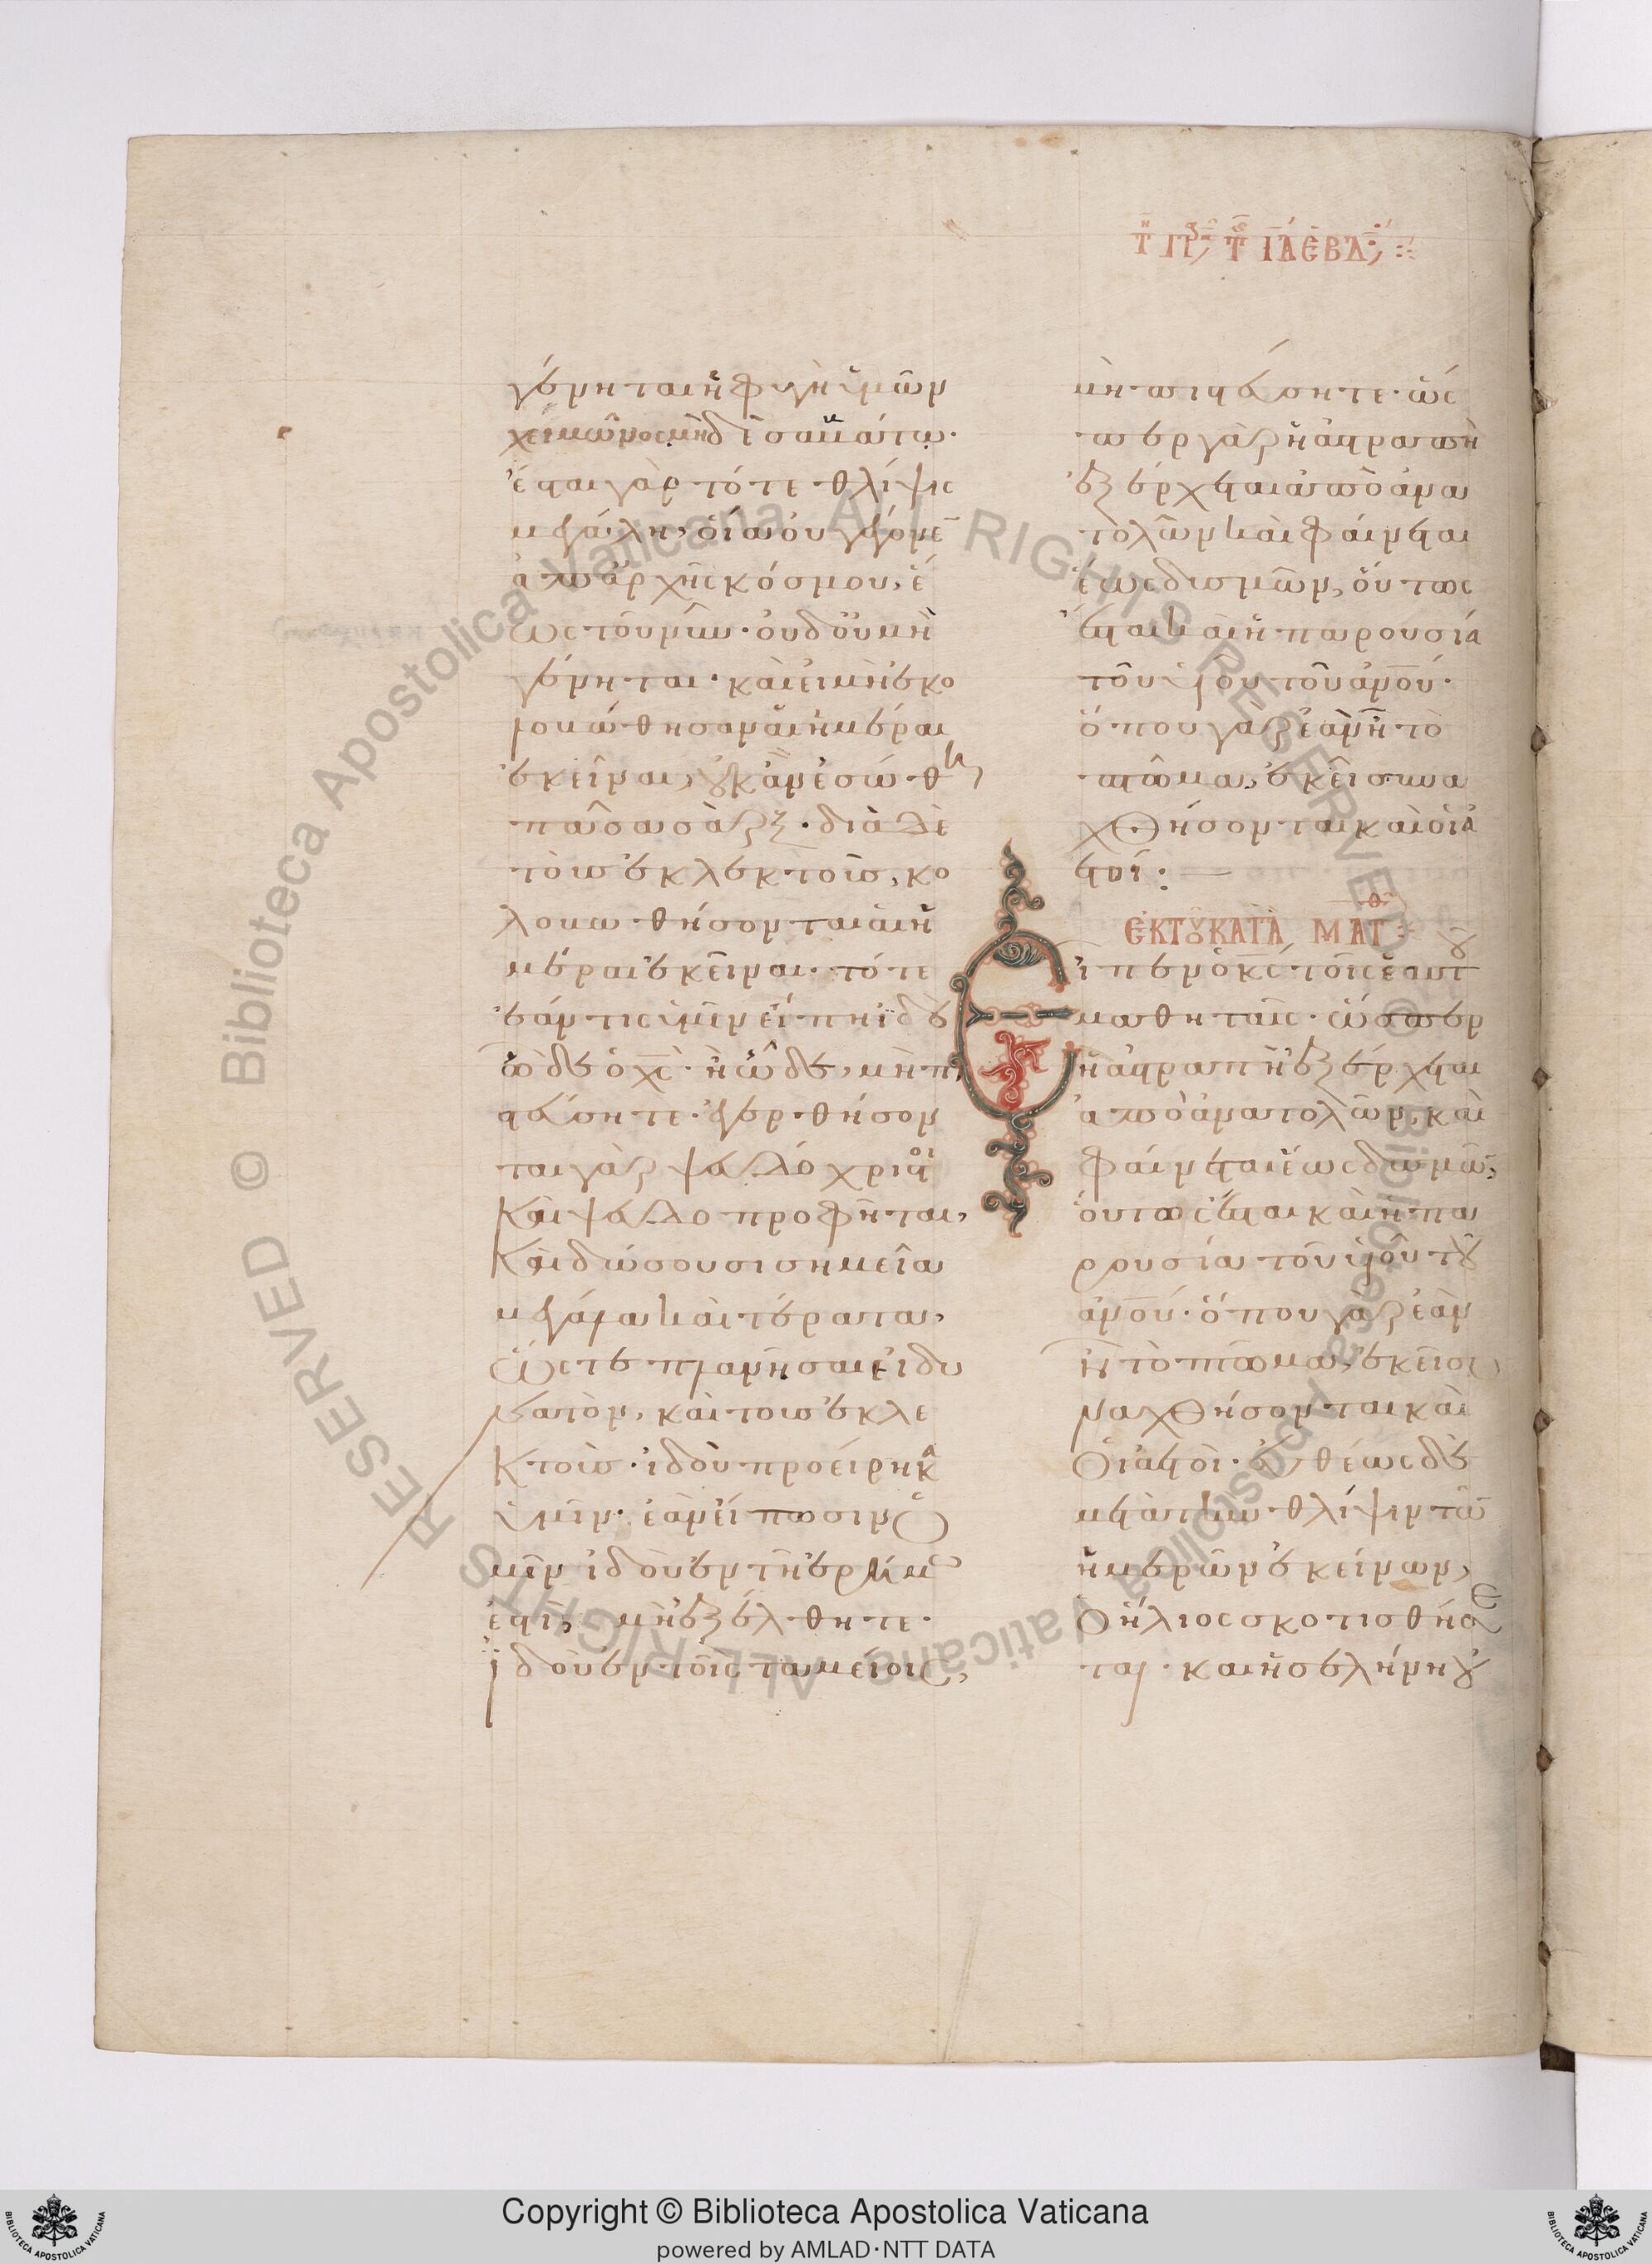 γένηται ἡ φυγὴ ὑμῶν
χειμῶνος μὴ δὲ σαββάτω·
ἔσται γὰρ τότε θλίψις
μεγάλη, οἵα οὐ γέγονε
ἀπ ἀρχῆς κόσμου, ἕ
ως τοῦ νῦν· οὐδ οὐ μὴ
γένηται· καὶ εἰ μὴ ἐκο
λοβώθησαν αἱ ἡμέραι
ἐκεῖναι, οὐκ ἂν ἐσώθη
πᾶσα σάρξ· διὰ δὲ
τοὺς ἐκλεκτοὺς, κο
λοβωθήσονται αἱ ἡ
μέραι ἐκεῖναι· τότε
ἐάν τις ὑμῖν εἴπη ἰδοὺ
ὧδε ὁ χς· ἢ ὧδε, μὴ πι
στεύσητε· ἐγερθήσον
ται γὰρ ψευδόχριστοι
καὶ ψευδοπροφῆται,
καὶ δώσουσι σημεῖα
μεγάλα καὶ τέρατα,
ὥστε πλανῆσαι εἰ δυ
νατὸν, καὶ τοὺς ἐκλε
κτοὺς· ἰδοὺ προείρηκα
ὑμῖν· ἐὰν εἴπωσιν ὑ
μῖν ἰδοὺ ἐν τῇ ἐρήμω
ἐστὶ, μὴ ἐξέλθητε·
ἰδοὺ ἐν τοῖς ταμείοις,
Τῇ ΠΑΡ, Τῆς ΙΑ ἙΒΔ,
μὴ πιστεύσητε· ὥσ
περ γὰρ ἡ ἀστραπὴ
ἐξέρχεται ἀπὸ ἀνα
τολῶν καὶ φαίνεται
ἕως δυσμῶν, οὕτως
ἔσται καὶ ἡ παρουσία
τοῦ υἱοῦ τοῦ ανου·
ὅπου γὰρ ἐὰν ῇ τὸ
πτῶμα, ἐκεῖ συνα
χθήσονται καὶ οἱ ἀ
ετοί:
ἘΚ ΤΟΥ ΚΑΤᾺ ΜΑΤΘ
Εἶπεν ὁ κς τοῖς ἑαυτοῦ
μαθηταῖς· ὥσπερ
ἡ ἀστραπὴ ἐξέρχεται
ἀπὸ ἀνατολῶν, καὶ
φαίνεται ἕως δυσμῶν,
οὕτως ἔσται καὶ ἡ πα
ρουσία τοῦ υἱοῦ τοῦ
ανου· ὅπου γὰρ ἐὰν
ῇ τὸ πτῶμα, ἐκεῖ συ
ναχθήσονται καὶ
οἱ ἀετοὶ· εὐθέως δὲ
μετὰ τὴν θλίψιν τῶν
ἡμερῶν ἐκείνων,
ὁ ἥλιος σκοτισθήσε
ται· καὶ ἡ σελήνη οὐ
Copyright © Biblioteca Apostolica Vaticana
powered by AMLAD·NTT DATA